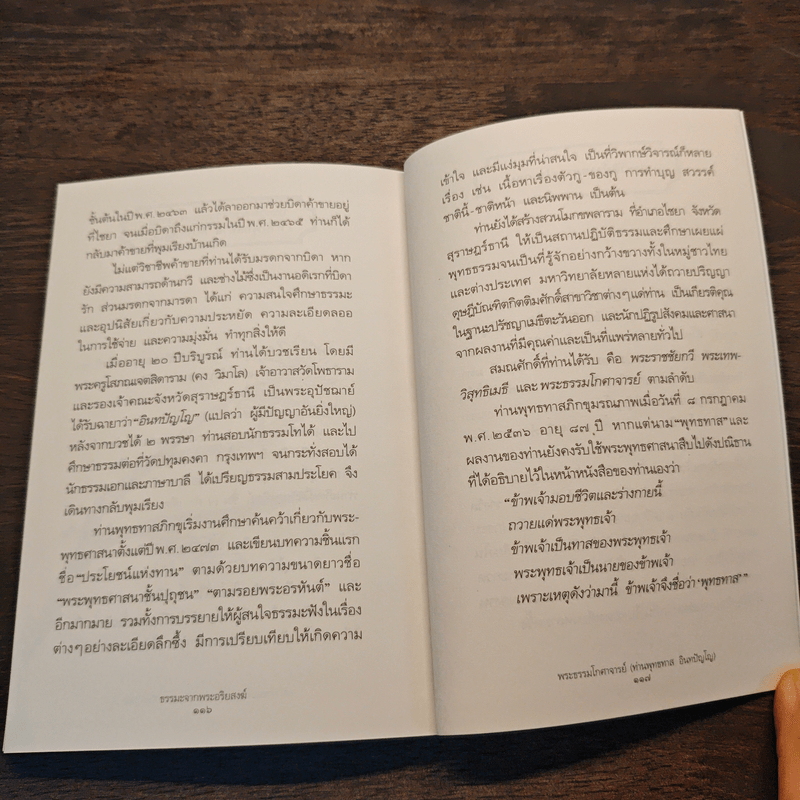 ชั้นต้นในปี พ.ศ. ๒๔๖๓ แล้วได้ลาออกมาช่วยบิดาค้าขายอยู่
ที่ไชยา จนเมื่อบิดาถึงแก่กรรมในปี พ.ศ. ๒๔๖๕ ท่านก็ได้
กลับมาค้าขายที่พุมเรียงบ้านเกิด
ไม่แต่วิชาชีพค้าขายที่ท่านได้รับมรดกจากบิดา หาก
ยังมีความสามารถด้านกวี และช่างไม้ซึ่งเป็นงานอดิเรกที่บิดา
รัก ส่วนมรดกจากมารดา ได้แก่ ความสนใจศึกษาธรรมะ
และอุปนิสัยเกี่ยวกับความประหยัด ความละเอียดลออ
ในการใช้จ่าย และความมุ่งมั่น ทำทุกสิ่งให้ดี
เมื่ออายุ ๒๐ ปีบริบูรณ์ ท่านได้บวชเรียน โดยมี
พระครูโสภณเจตสิตาราม (คง วิมาโล) เจ้าอาวาสวัดโพธาราม
และรองเจ้าคณะจังหวัดสุราษฎร์ธานี เป็นพระอุปัชฌาย์
ได้รับฉายาว่า “อินทปัญโญ” (แปลว่า ผู้มีปัญญาอันยิ่งใหญ่)
หลังจากบวชได้ ๒ พรรษา ท่านสอบนักธรรมโทได้ และไป
ศึกษาธรรมต่อที่วัดปทุมคงคา กรุงเทพฯ จนกระทั่งสอบได้
นักธรรมเอกและภาษาบาลี ได้เปรียญธรรมสามประโยค จึง
เดินทางกลับพุมเรียง
ท่านพุทธทาสภิกขุเริ่มงานศึกษาค้นคว้าเกี่ยวกับพระ-
พุทธศาสนาตั้งแต่ปี พ.ศ. ๒๔๗๓ และเขียนบทความชิ้นแรก
ชื่อ “ประโยชน์แห่งทาน” ตามด้วยบทความขนาดยาวชื่อ
“พระพุทธศาสนาชั้นปุถุชน” “ตามรอยพระอรหันต์” และ
อีกมากมาย รวมทั้งการบรรยายให้ผู้สนใจธรรมะฟังในเรื่อง
ต่างๆ อย่างละเอียดลึกซึ้ง มีการเปรียบเทียบให้เกิดความ
ธรรมะจากพระอริยสงฆ์
๑๑๖
เข้าใจ และมีแง่มุมที่น่าสนใจ เป็นที่วิพากษ์วิจารณ์ก็หลาย
เรื่อง เช่น เนื้อหาเรื่องตัวกู-ของกู การทำบุญ สวรรค์
ชาตินี้-ชาติหน้า และนิพพาน เป็นต้น
ท่านยังได้สร้างสวนโมกขพลาราม ที่อำเภอไชยา จังหวัด
สุราษฎร์ธานี ให้เป็นสถานปฏิบัติธรรมและศึกษาเผยแผ่
พุทธธรรมจนเป็นที่รู้จักอย่างกว้างขวางทั้งในหมู่ชาวไทย
และต่างประเทศ มหาวิทยาลัยหลายแห่งได้ถวายปริญญา
ดุษฎีบัณฑิตกิตติมศักดิ์สาขาวิชาต่างๆ แด่ท่าน เป็นเกียรติคุณ
ในฐานะปรัชญาเมธีตะวันออก และนักปฏิรูปสังคมและศาสนา
จากผลงานที่มีคุณค่าและเป็นที่แพร่หลายทั่วไป
สมณศักดิ์ที่ท่านได้รับ คือ พระราชชัยกวี พระเทพ-
วิสุทธิเมธี และ พระธรรมโกศาจารย์ ตามลำดับ
ท่านพุทธทาสภิกขุมรณภาพเมื่อวันที่ ๘ กรกฎาคม
พ.ศ. ๒๕๓๖ อายุ ๘๗ ปี หากแต่นาม “พุทธทาส” และ
ผลงานของท่านยังคงรับใช้พระพุทธศาสนาสืบไปดังปณิธาน
ที่ได้อธิบายไว้ในหน้าหนังสือของท่านเองว่า
“ข้าพเจ้ามอบชีวิตและร่างกายนี้
ถวายแด่พระพุทธเจ้า
ข้าพเจ้าเป็นทาสของพระพุทธเจ้า
พระพุทธเจ้าเป็นนายของข้าพเจ้า
เพราะเหตุดังว่ามานี้ ข้าพเจ้าจึงชื่อว่า ‘พุทธทาส’”
พระธรรมโกศาจารย์ (ท่านพุทธทาส อินทปัญโญ)
๑๑๗